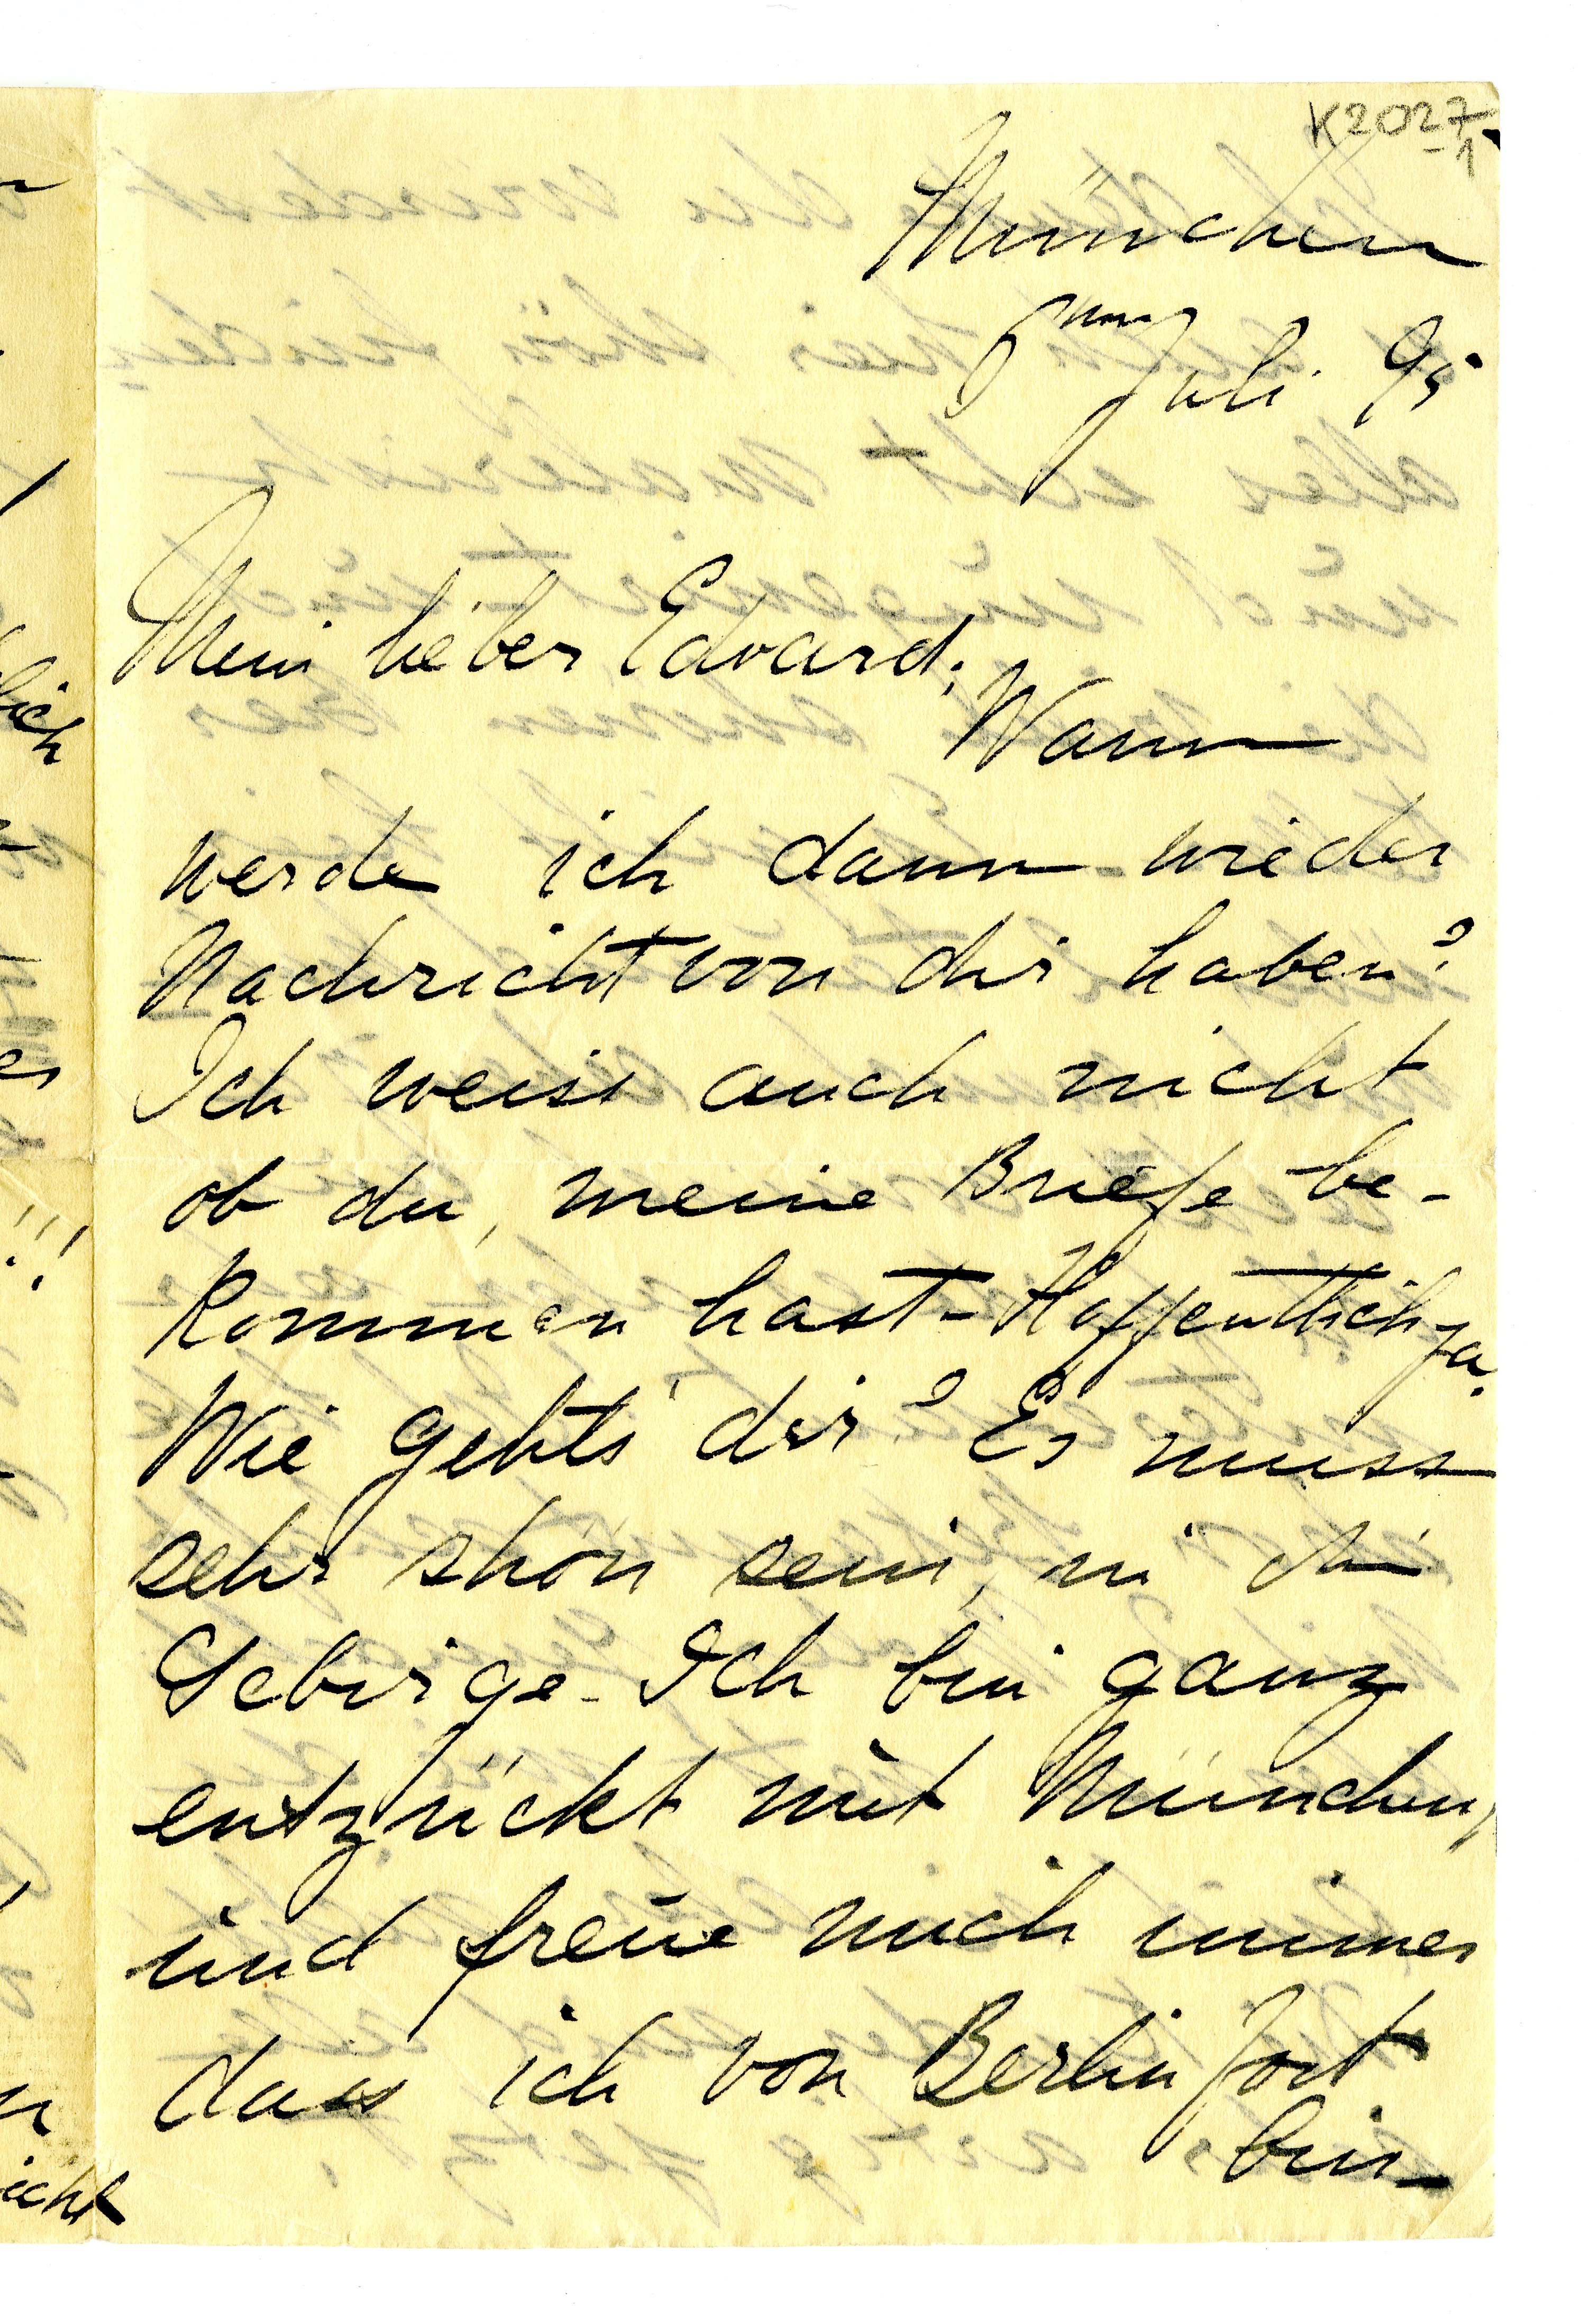 K2027
1
München
6 Juli 95
Mein lieber Edvard;
Wann
werde ich dann wieder
Nachricht von dir haben?
Ich weiss auch nicht
ob du, meine Briefe be-
kommen hast- Hoffentlich ja.
Wie gehts' dir? Es muss
sehr shön sein, in die
Gebirge- Ich bin ganz
entzückt mit München,
und freue mich immer
dass ich von Berlin fort
bin
lich
!!!
icht